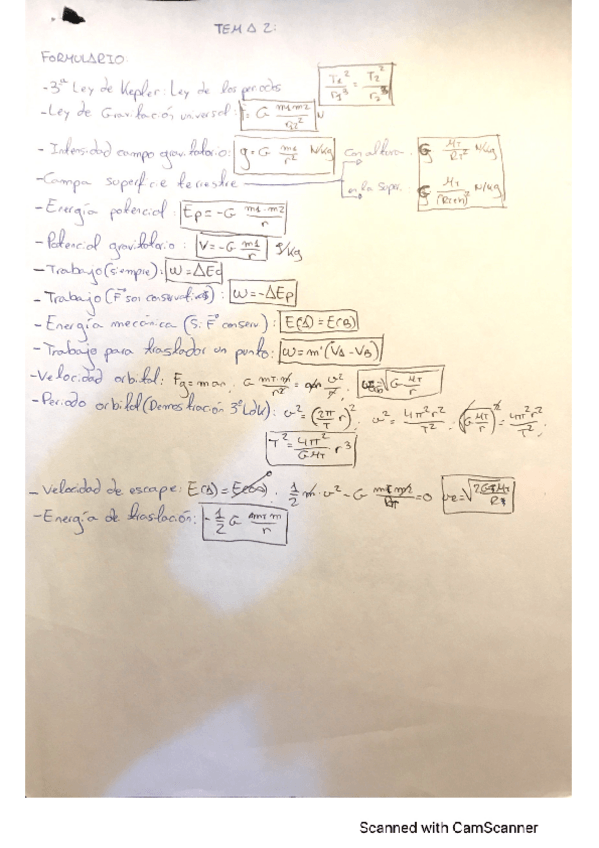 TEMA 2:
FORMULARIO:
-3ª Ley de Kepler: Ley de los periodos T₁²/r₁³ = T₂²/r₂³
-Ley de Gravitación universal: F = G m1 m2/r² N
- Intensidad campo gravitatorio: g = G m1/r² N/kg con altura: G MT/RT² N/kg
-Campo superficie terrestre en la super.: G MT/(RT+h)² N/kg
-Energía potencial: Ep = -G m1·m2/r
-Potencial gravitatorio: V = -G m1/r J/kg
-Trabajo (siempre): W = ΔEc
-Trabajo (F son conservativas): W = -ΔEp
-Energía mecánica (Si F conserv): E(A) = E(B)
-Trabajo para trasladar un punto: W = m'(VA - VB)
-Velocidad orbital: Fg = m·an, G mT·m/r² = m v²/r; v = √G MT/r
-Periodo orbital (Demostración 3ª LdK): v² = (2π/T r)²; v² = 4π²r²/T²; (√G MT/r)² = 4π²r²/T²;
T² = 4π²/G MT · r³
-Velocidad de escape: E(A) = E(∞); 1/2 m·v² - G mT m/RT = 0 ve = √2G MT/RT
-Energía de traslación: -1/2 G mT m/r
Scanned with CamScanner